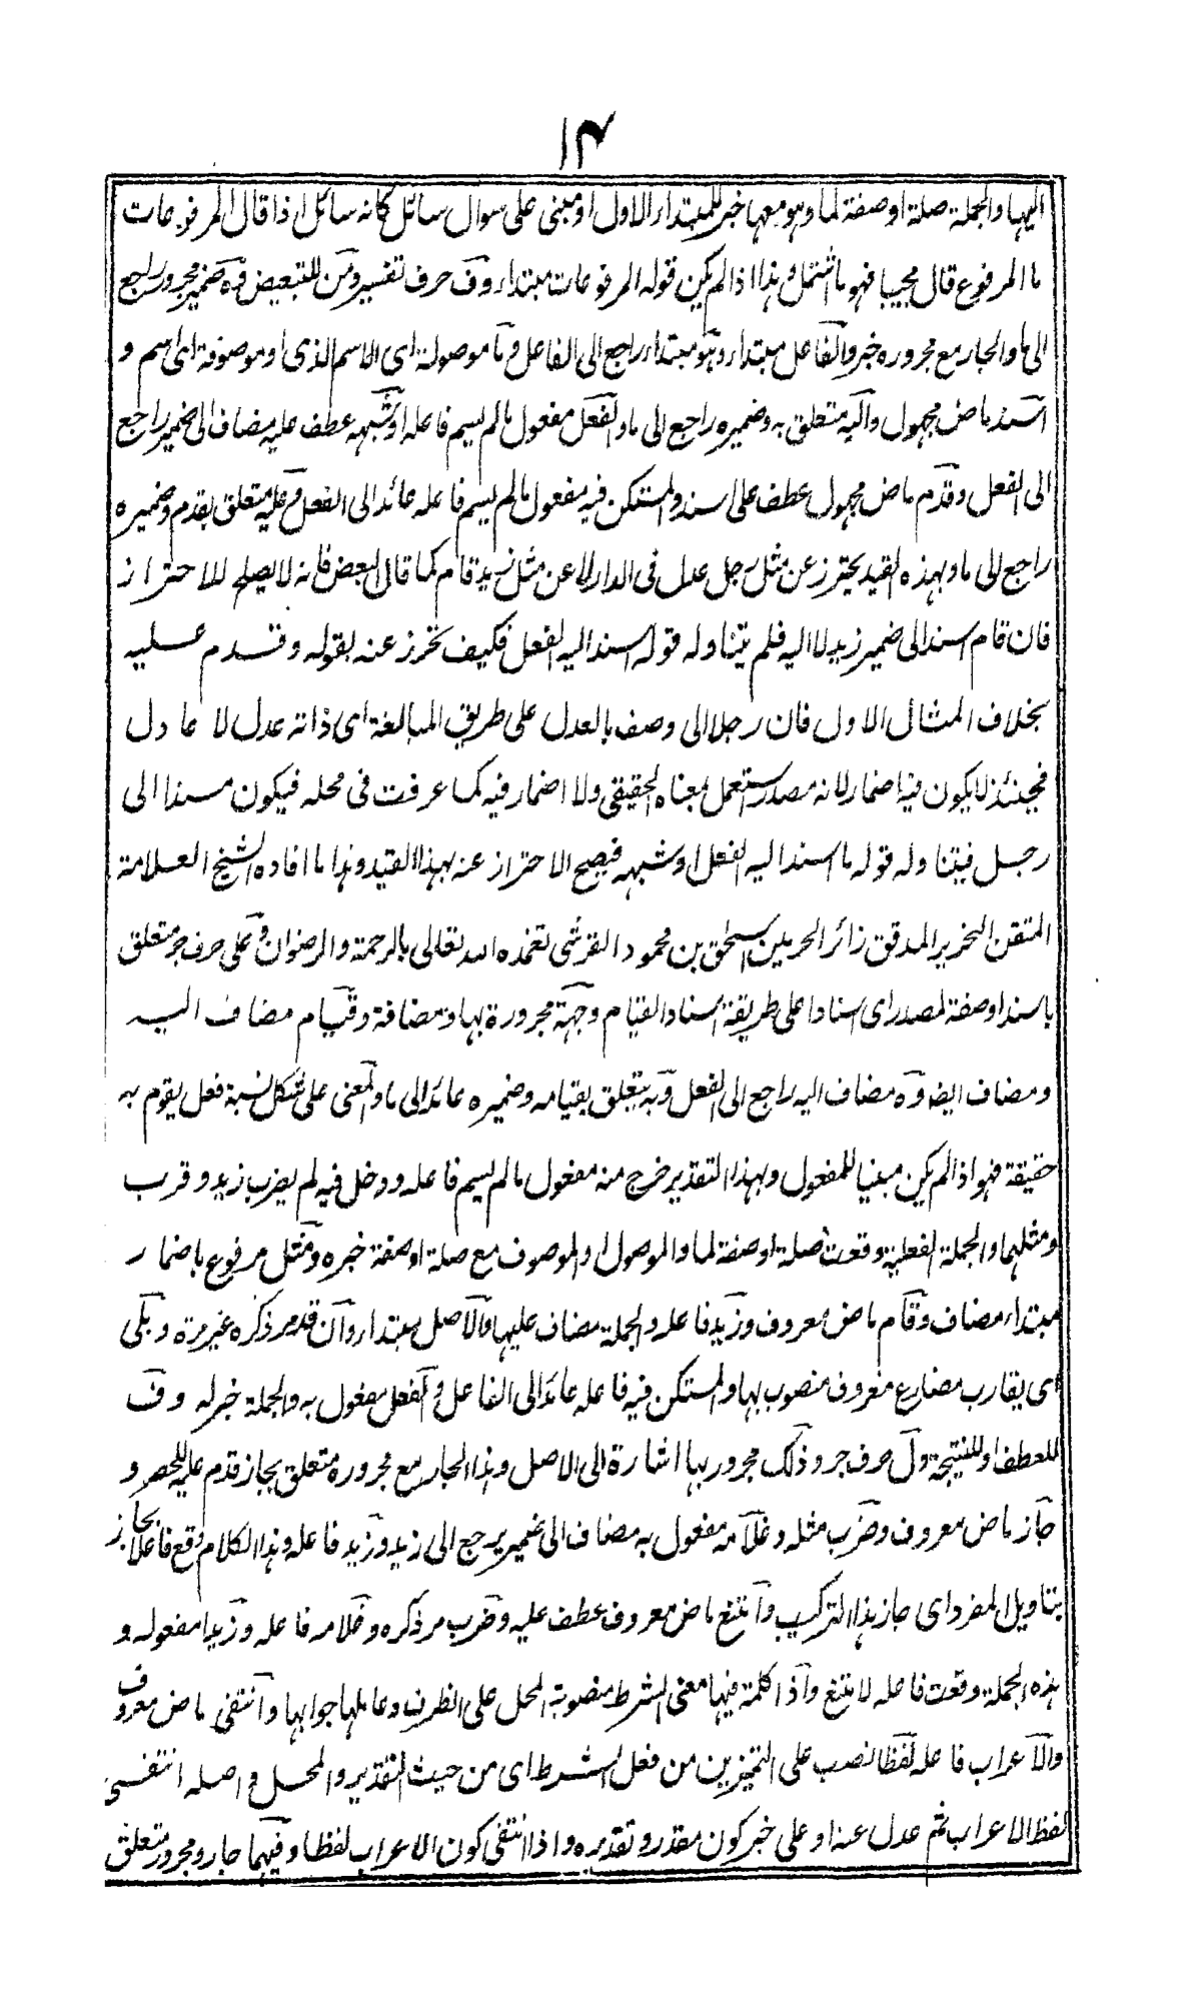 ١٤
اليها والجملة صلة او صفة لما وهو معها خبر للمبتداء الاول او مبنى على سوال سائل كانه سائل اذا قال المرفوعات
ما المرفوع قال مجيبا فهو ما اشتمل وهذا اذا لم يكن قوله المرفوعات مبتداء وف حرف تفسير ومن للتبعيض وه ضمير مجرور راجع
الى ما والجار مع مجروره خبر والفاعل مبتداء وهو مبتداء راجع الى الفاعل وما موصولة اى الاسم الذى او موصوفة اى اسم و
اسند ماض مجهول واليه متعلق به وضميره راجع الى ما والفعل مفعول مالم يسم فاعله او شبهه عطف عليه مضاف الى ضمير راجع
الى الفعل وقدم ماض مجهول عطف على اسند والمستكن فيه مفعول مالم يسم فاعله عائد الى الفعل وعليه متعلق بقدم وضميره
راجع الى ما وبهذه القيد يحترز عن مثل رجل عدل فى الدار لا عن مثل زيد قام كما قال البعض فانه لا يصلح للاحتراز
فان قام اسند الى ضمير زيد لا اليه فلم يتناوله قوله اسند اليه الفعل فكيف تحرز عنه بقوله وقدم عليه
بخلاف المثال الاول فان رجلا الى وصف بالعدل على طريق المبالغة اى ذاته عدل لا عادل
فحينئذ لا يكون فيه اضمار لانه مصدر استعمل بمعناه الحقيقى ولا اضمار فيه كما عرفت فى محله فيكون مسندا الى
رجل فيتناوله قوله ما اسند اليه الفعل او شبهه فيصح الاحتراز عنه بهذا القيد وهذا ما افاده الشيخ العلامة
المتقن النحرير المدقق زائر الحرمين اسحق بن محمود القرشى تغمده الله تعالى بالرحمة والرضوان وعلى حرف جر متعلق
باسند او صفة لمصدر اى اسنادا على طريقة اسناد القيام وجهة مجرورة بها ومضافة وقيام مضاف اليه
ومضاف ايضا وه مضاف اليه راجع الى الفعل وبه يتعلق بقيامه وضميره عائد الى ما والمعنى على شكل نسبة فعل يقوم به
حقيقة فهو اذا لم يكن مبنيا للمفعول وبهذا التقدير خرج منه مفعول مالم يسم فاعله ودخل فيه لم يضرب زيد وقرب
ومثلهما والجملة الفعلية وقعت صلة او صفة لما والموصول او الموصوف مع صلة او صفة خبره ومثل مرفوع باضمار
مبتداء مضاف وقام ماض معروف وزيد فاعله والجملة مضاف عليها والاصل مبتداء وان قد مر ذكره غير مرة ويلى
اى يقارب مضارع معروف منصوب بها والمستكن فيه فاعله عائد الى الفاعل والفعل مفعول به والجملة خبر له وف
للعطف او للنتيجة ول حرف جر وذلك مجرور بها اشارة الى الاصل وهذا الجار مع مجروره متعلق بجاز قدم عليه للحصر و
جاز ماض معروف وضرب مثله وغلامه مفعول به مضاف الى ضمير يرجع الى زيد وزيد فاعله وهذا الكلام وقع فاعلا بجاز
بتاويل المفرد اى جاز هذا التركيب وامتنع ماض معروف عطف عليه وضرب مر ذكره وغلامه فاعله وزيدا مفعوله و
هذه الجملة وقعت فاعله لامتنع واذا كلمة فيها معنى الشرط منصوبة المحل على الظرف وعاملها جوابها وانتفى ماض معروف
والاعراب فاعله لفظا نصب على التميز ين من فعل الشرط اى من حيث التقدير والمحل واصله انتفى
لفظ الاعراب ثم عدل عنه او على خبر كون مقدر وتقديره واذا انتفى كون الاعراب لفظا وفيهما جار ومجرور متعلق